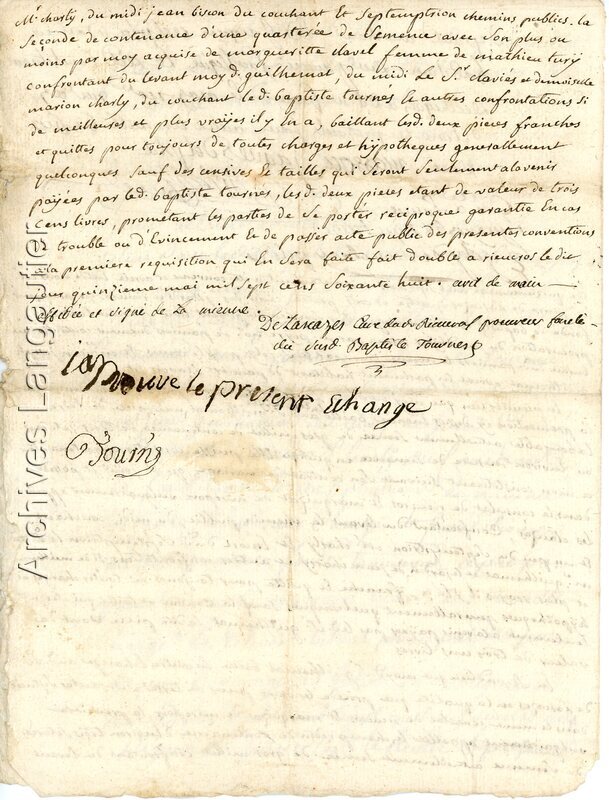 Mr charly, du midi jean biscon du couchant Et Septemptrion chemins publics. la
Seconde de contenance d'une quarterée de Semence avec Son plus ou
moins par moy acquise de margueritte clavel femme de mathieu
confrontant du levant moy d. guilhemat, du midi Le Sr. clavies et demoiselle
marion charly, du couchant led. baptiste tournés Et autres confrontations si
de meilleures et plus vrayes il y En a, baillant lesd. deux pieces franches
et quittes pour toujours de toutes charges et hypotheques generallement
quelconques Sauf des censives Et tailles qui Seront Seulement alavenir
payées par led. baptiste tournes, les d. deux pieces etant de valeur de trois
cens livres, prometant les parties de Se portér reciproque garantie En cas
trouble ou d'Evincement Et de passer acte public des presentes conventions
a la premiere requisition qui En Sera faite fait double a rieucros le dit
jour quinzieme mai mil Sept cens Soixante huit.
et signé de La mienne.
procureur
du Susd. Baptiste Tournes
japrouve le present Echange
Tourn
Archives Langautier